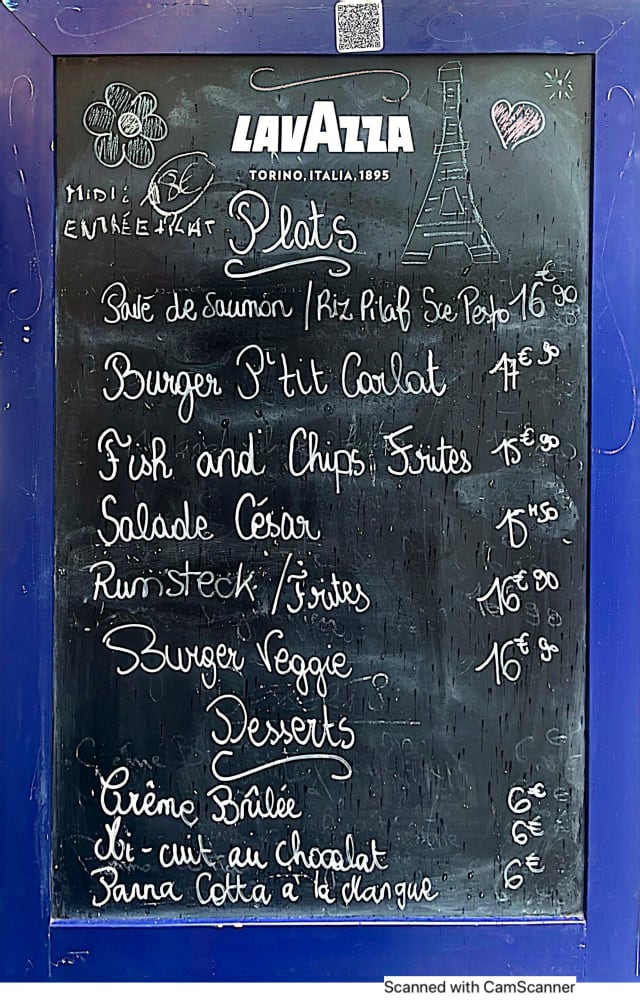 LAVAZZA
TORINO, ITALIA, 1895
MIDI: 18€
ENTRÉE + PLAT
Plats
Pavé de Saumon / Riz Pilaf Sce Pesto 16€90
Burger P'tit Carlat 17€90
Fish and Chips Frites 15€90
Salade César 15€50
Rumsteck / Frites 16€90
Burger Veggie 16€90
Desserts
Crème Brûlée 6€
Mi-cuit au chocolat 6€
Panna Cotta à la Mangue 6€
Scanned with CamScanner